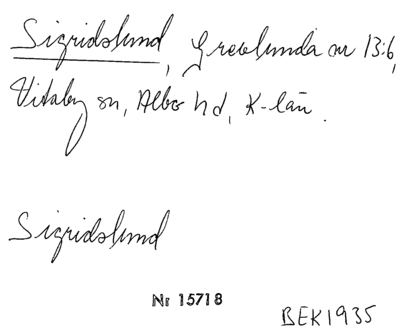 Sigridslund, Grevlunda nr 13:6,
Vitaby sn, Albo hd, K-län.
Sigridslund
Nr 15718
BEK1935